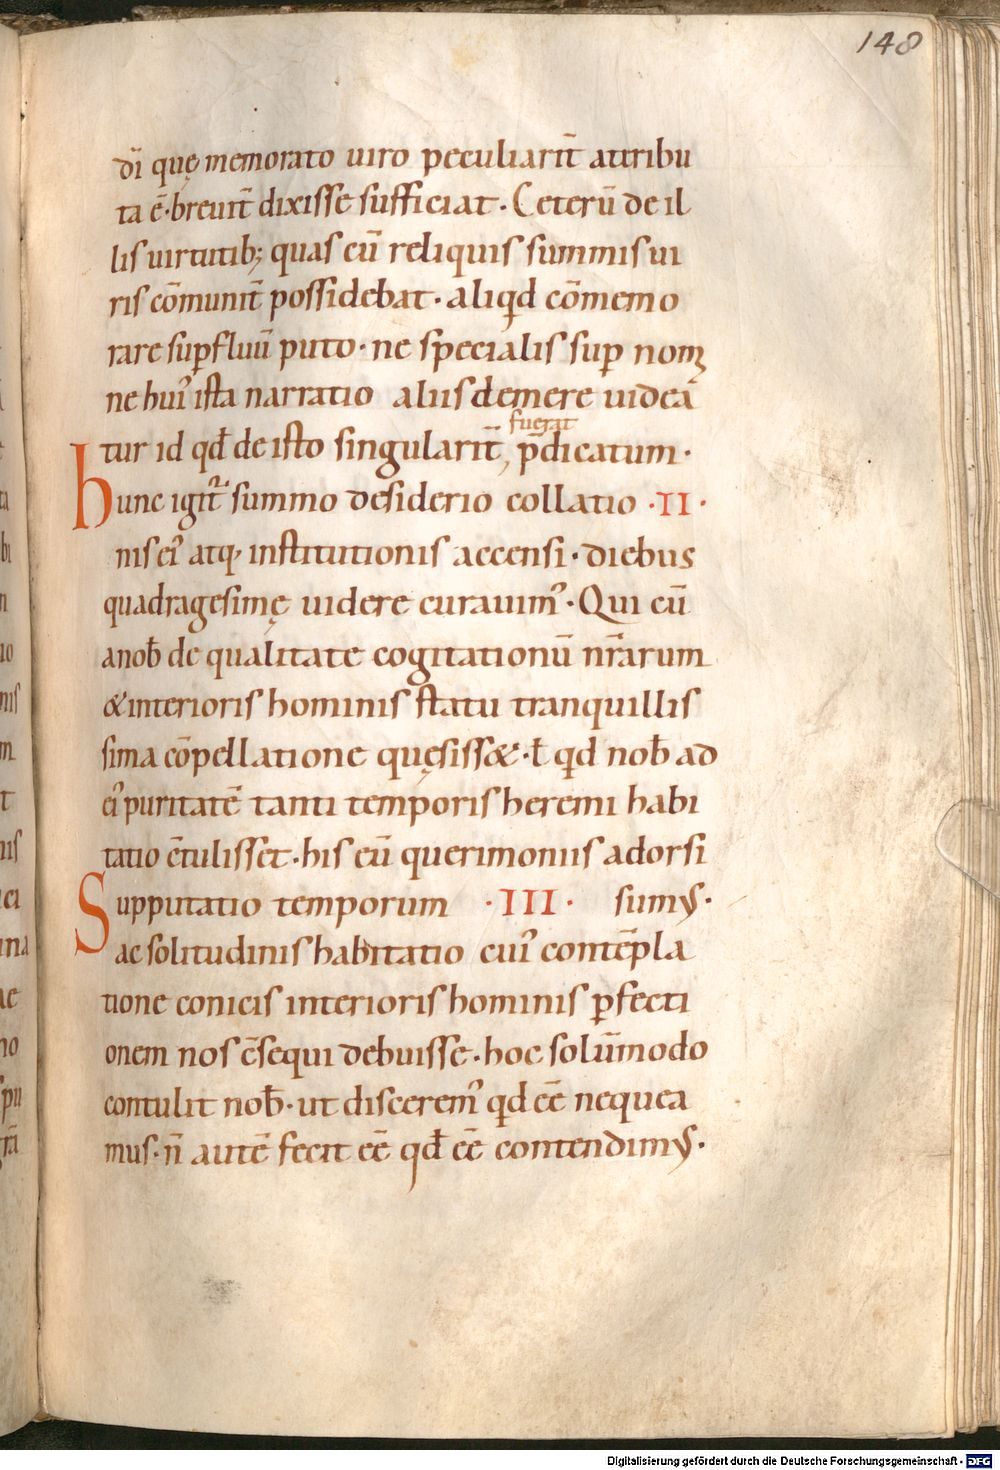 148
dī quę memorato uiro peculiarit̄ attribu
ta ē·breuit̄ dixisse sufficiat· Ceterū de il
lis uirtutib; quas cū reliquis summis ui
ris cōmunit̄ possidebat· aliqd cōmemo
rare suꝑfluū puto· ne specialis suꝑ nom
ne huiꝰ ista narratio aliis demere uideā
fuerat
tur id qd̄ de isto singularit̄, p̄dicatum·
hunc igit᷑ summo desiderio collatio ·II·
nis eiꝰ atq; institutionis accensi· diebus
quadragesimę uidere curauimꝰ· Qui cū
anob̄ de qualitate cogitationū nr̄arum
&interioris hominis statu tranquillis
sima cōpellatione quęsiss&·ł qd nob̄ ad
eiꝰ puritatē tanti temporis heremi habi
tatio c̄tulisset· his cū querimoniis adorsi
Supputatio temporum ·III· sumꝰ·
ac solitudinis habitatio cuiꝰ contēpla
tione conicis interioris hominis ꝑfecti
onem nos c̄sequi debuisse· hoc solūmodo
contulit nob̄· ut disceremꝰ qd eē nequea
mus· n̄ autē fecit eē qd̄ eē contendimꝰ·
Digitalisierung gefördert durch die Deutsche Forschungsgemeinschaft - DFG